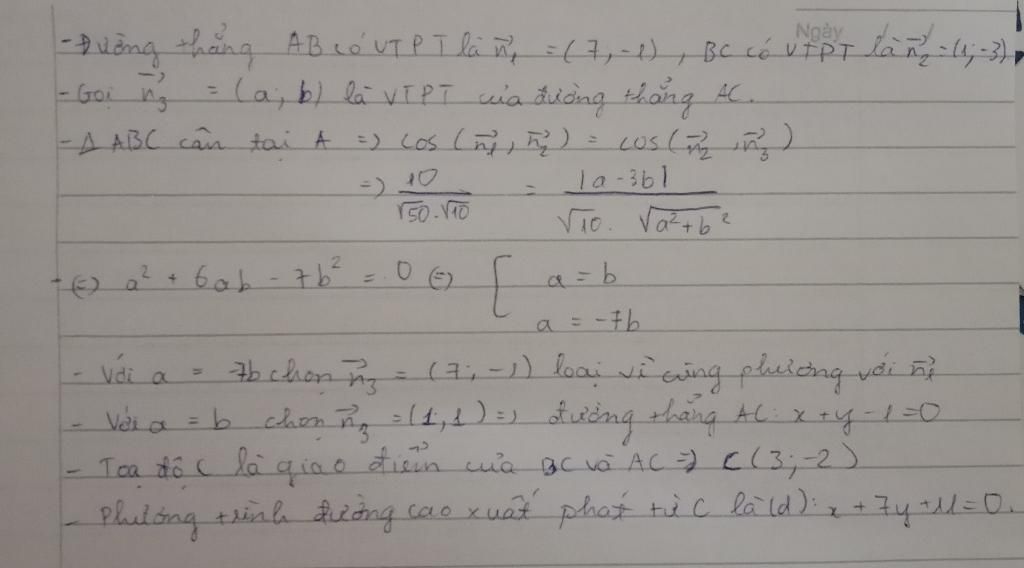 Ngày
- Đường thẳng AB có VTPT là n₁⃗ = (7, -1) , BC có VTPT là n₂⃗ = (1; -3)
- Gọi n₃⃗ = (a; b) là VTPT của đường thẳng AC.
- Δ ABC cân tại A => cos (n₁⃗, n₂⃗) = cos (n₂⃗, n₃⃗)
=> 10 / (√50 . √10) = |a - 3b| / (√10 . √(a² + b²))
(=) a² + 6ab - 7b² = 0 (=) [ a = b
a = -7b
- Với a = 7b chọn n₃⃗ = (7; -1) loại vì cùng phương với n₁⃗
- Với a = b chọn n₃⃗ = (1; 1) => đường thẳng AC: x + y - 1 = 0
- Toạ độ C là giao điểm của BC và AC => C (3; -2)
- Phương trình đường cao xuất phát từ C là (d): x + 7y + 11 = 0.